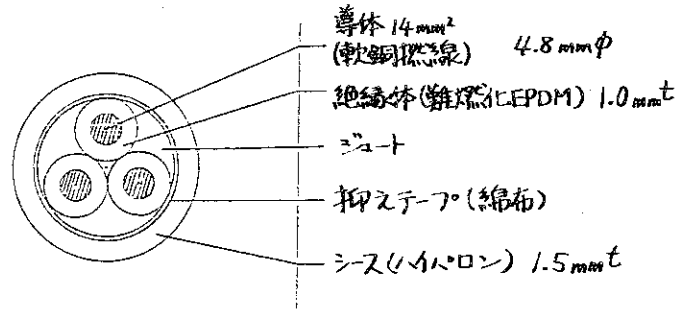 導体 14mm²
(軟銅撚線) 4.8mmφ
絶縁体(難燃化EPDM) 1.0mmt
ジュート
抑えテープ(綿布)
シース(ハイパロン) 1.5mmt